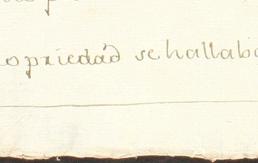 opriedad se hallab